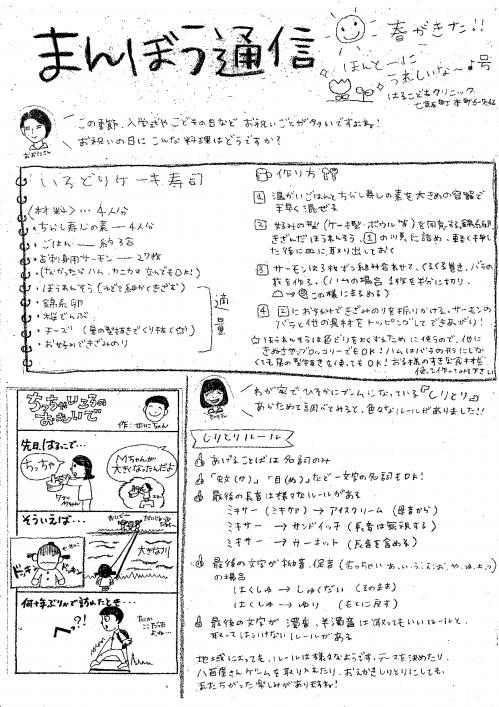 まんぼう通信
春がきた!!
ほんとーに
うれしいな〜♪号
はるこどもクリニック
この季節、入学式やこどもの日など お祝いごとが多いですよね!
お祝いの日に こんな料理はどうですか?
いろどりケーキ寿司
〈材料〉… 4人分
・ちらし寿しの素 — 4人分
・ごはん — 約3合
・お刺身用サーモン — 27枚
・(なかったら ハム、カニカマ なんでもOK!)
・ほうれんそう (ゆでて細かくきざむ)
・錦糸卵
・桜でんぶ
・チーズ (星の型抜きでくり抜く☆)
・お好みできざみのり
適量
作り方
1 温かいごはんとちらし寿しの素を大きめの容器で
手早く混ぜる
2 お好みの型 (ケーキ型・ボウル等)を用意する。錦糸卵
きざんだほうれんそう、1の順に詰め、軽く押し
た後に皿に取り出しておく
3 サーモンは3枚ずつ組み合わせて、くるくる巻き、バラの
形を作る。(ハムの場合 1枚を半分に切り、
この様にまるめる)
4 2にお好みできざみのりを振りかける。サーモンの
バラと他の具材をトッピングして できあがり!
☆ほうれんそうは色どりをよくするために使うので、他に
きぬさや、ブロッコリーでもOK! ハムはバラの形にしな
くても星の型抜きを使ってもOK! お子様のすきな食材を
使って作ってみて下さい
ちっちゃいころの
おもいで
作:せにちゃん
先日、はるこで…
わっちゃ
Mちゃんが
大きくなったんだよ
そういえば…
ドッキン
ドッキン
大きな川
何十年ぶりかで訪れたとき…
へっ?!
わが家で ひそかにブームになっている『しりとり』
あらためて調べてみると、色々なルールがありました!!
しりとりルール
あげることばは名詞のみ
「蚊(か)」「目(め)」など一文字の名詞もOK!
最後の長音は様々なルールがある
ミキサー (ミキサァ) → アイスクリーム (母音から)
ミキサー → サンドイッチ (長音は無視する)
ミキサー → サーキット (長音を含める)
最後の文字が拗音、促音 (ちっちゃい ぁ、ぃ、ぅ、ぇ、ぉ、ゃ、ゅ、ょ、っ)
の場合
はくしゅ → しゅくだい (そのまま)
はくしゅ → ゆり (もとに戻す)
最後の文字が 濁音、半濁音は 取ってもいいルールと、
取ってはいけないルールがある
地域によっても、ルールは様々なようです。テーマを決めたり、
八百屋さんゲームを取り入れたり、おえかきしりとりにしても、
またちがった楽しみがありますね!